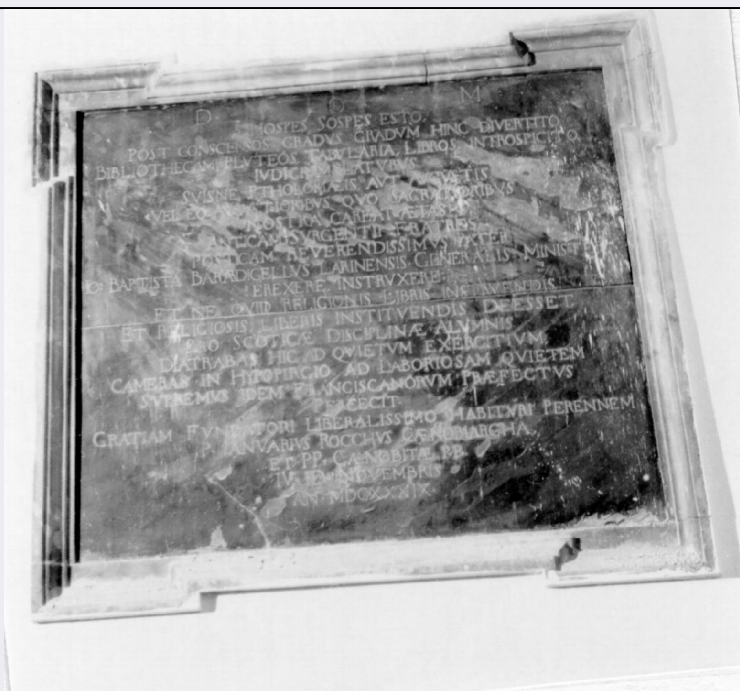 D O M
HOSPES SOSPES ESTO
POST CONSCENSOS GRADVS GRADVM HINC DIVERTITO
BIBLIOTHECAM PLVTEOS TABVLARIA LIBROS INTROSPICITO
IVDICIVM
SVISNE PTHOLOMÆIS AVT
VEL QVO SACRATIORIBVS
NOSTRA ÆTAS
POSTICAM REVERENDISSIMVS PATER
IO BAPTISTA BARADICELLVS LARINENSIS GENERALIS MINIST
EREXERE INSTRVXERE
ET NE QVID RELIGIONIS LIBRIS INSTVENDIS
ET RELIGIOSIS LIBERIS INSTITVENDIS DEESSET
PRO SCOTICÆ DISCIPLINÆ ALVMNIS
DIATRABAS HIC AD QVIETVM EXERCITIVM
CAMERAS IN HYPOPIRGIO AD LABORIOSAM QVIETEM
SVPREMVS IDEM FRANCISCANORVM PRÆFECTVS
FECIT
GRATIAM FVNDATORI LIBERALISSIMO HABITVRI PERENNEM
IANVARIVS ROCCHVS CÆNOMARGHA
ET PP CÆNOBITÆ PP
NOVEMBRIS
AN MDCXXXIX